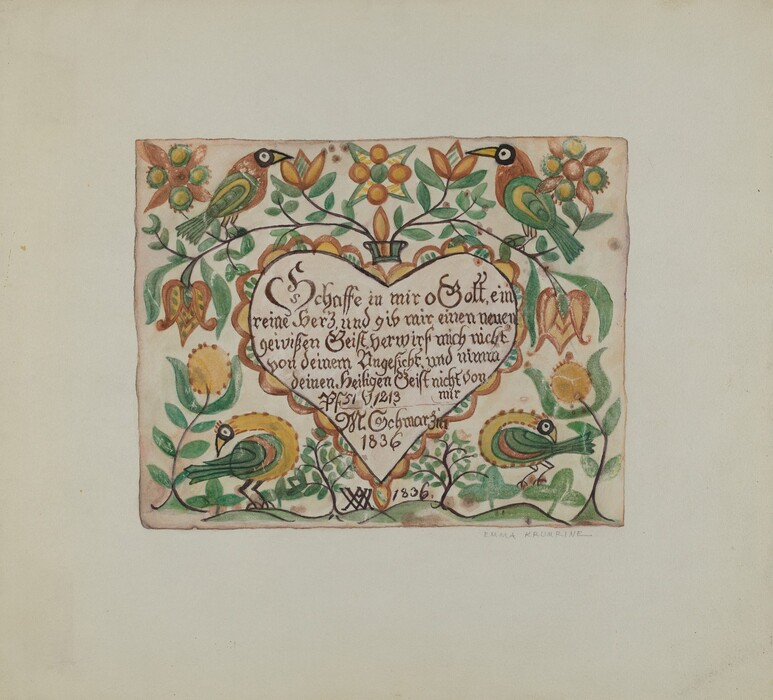 Schaffe in mir o Gott, ein
reine Herz, und gib mir einen neuen
gewißen Geist, verwirf mich nicht
von deinem Angesicht, und nimm
deinen Heiligen Geist nicht von
mir
1836
1836